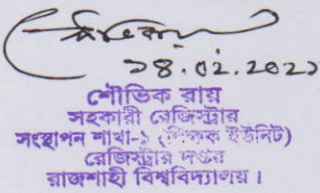 ১৪.০২.২০২১
শৌভিক রায়
সহকারী রেজিস্ট্রার
সংস্থাপন শাখা-১ (শিক্ষক ইউনিট)
রেজিস্ট্রার দপ্তর
রাজশাহী বিশ্ববিদ্যালয়।